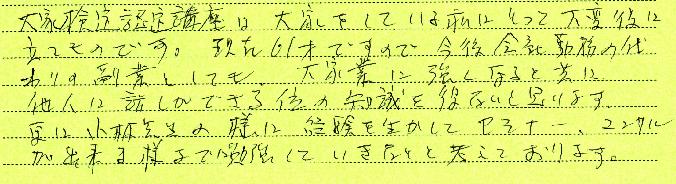 大家検定認定講座は大家をしている私にとって大変役に
立てものです。現在61才ですので今後会社勤務の代
わりの副業としても、大家業に強くなると共に
他人に話しができる位の知識を得たいと思います。
更に小林先生の様に経験を生かしてセミナー、コンサル
が出来る様まで勉強していきたいと考えております。